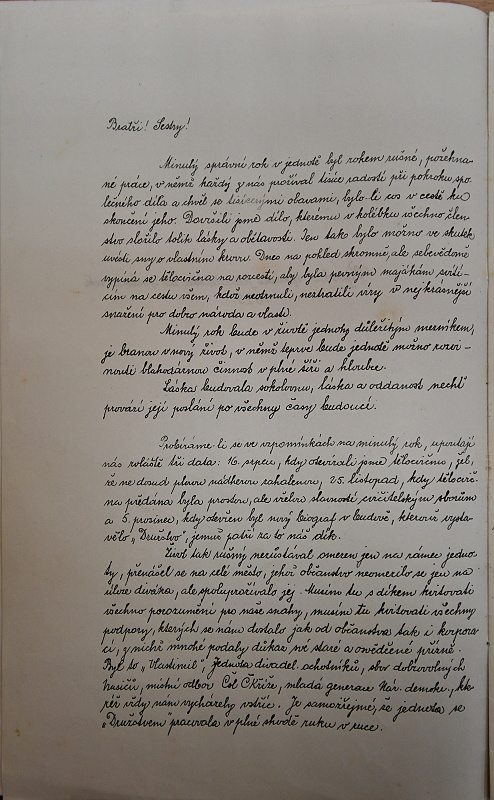 Bratři! Sestry!
Minulý správní rok v jednotě byl rokem rušné, požehna-
né práce, v němž každý z nás prožíval tisíce radostí při pokroku spo-
lečného díla a chvěl se tisícerými obavami, bylo-li cos v cestě ku
skončení jeho. Dovršili jsme dílo, kterému v kolébku všechno člen-
stvo složilo tolik lásky a obětavosti. Jen tak bylo možno ve skutek
uvésti sny o vlastním krovu. Dnes na pohled skromně, ale sebevědomě
vypíná se tělocvična na rozcestí, aby byla pevným majákem svítí-
cím na cestu všem, kdož neutrnuli, neztratili víry v nejkrásnější
snažení pro dobro národa a vlasti.
Minulý rok bude v životě jednoty důležitým mezníkem,
je branou v nový život, v němž teprve bude jednotě možno rozvi-
nouti blahodárnou činnost v plné šíři a hloubce.
Láska budovala sokolovnu, láska a oddanost nechť
provází její poslání po všechny časy budoucí.
Probíráme-li se ve vzpomínkách na minulý rok, upoutají
nás zvláště tři data: 16. srpen, kdy otevírali jsme tělocvičnu, žel,
že ne dosud plnou nádherou zahalenou, 25. listopad, kdy tělocvič-
na předána byla prostou, ale vřelou slavností cvičitelským sborům
a 5. prosinec, kdy otevřen byl nový biograf v budově, kterou vysta-
vělo „Družstvo", jemuž patří za to náš dík.
Život tak rušný nezůstával omezen jen na rámec jedno-
ty, přenášel se na celé město, jehož občanstvo neomezilo se jen na
úlohu diváka, ale spoluprožívalo jej. Musím tu s díkem kvitovati
všechno porozumění pro naše snahy, musím tu kvitovati všechny
podpory, kterých se nám dostalo jak od občanstva tak i korpora-
cí, z nichž mnohé podaly důkaz své staré a osvědčené přízně.
Byl to „Vlastimil", Jednota divadel. ochotníků, sbor dobrovolných
hasičů, místní odbor Čsl. Č. Kříže, mladá generace Nár. demokr., kte-
réž vždy nám vycházely vstříc. Je samozřejmé, že jednota se
„Družstvem" pracovala v plné shodě ruku v ruce.